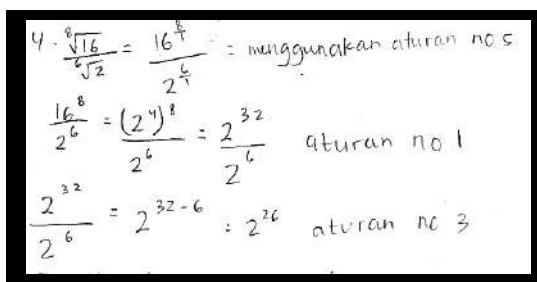 4. ⁸√16 / ⁶√2 = 16^(8/1) / 2^(6/1) = menggunakan aturan no 5
16^8 / 2^6 = (2^4)^8 / 2^6 = 2^32 / 2^6 aturan no 1
2^32 / 2^6 = 2^(32-6) : 2^26 aturan no 3